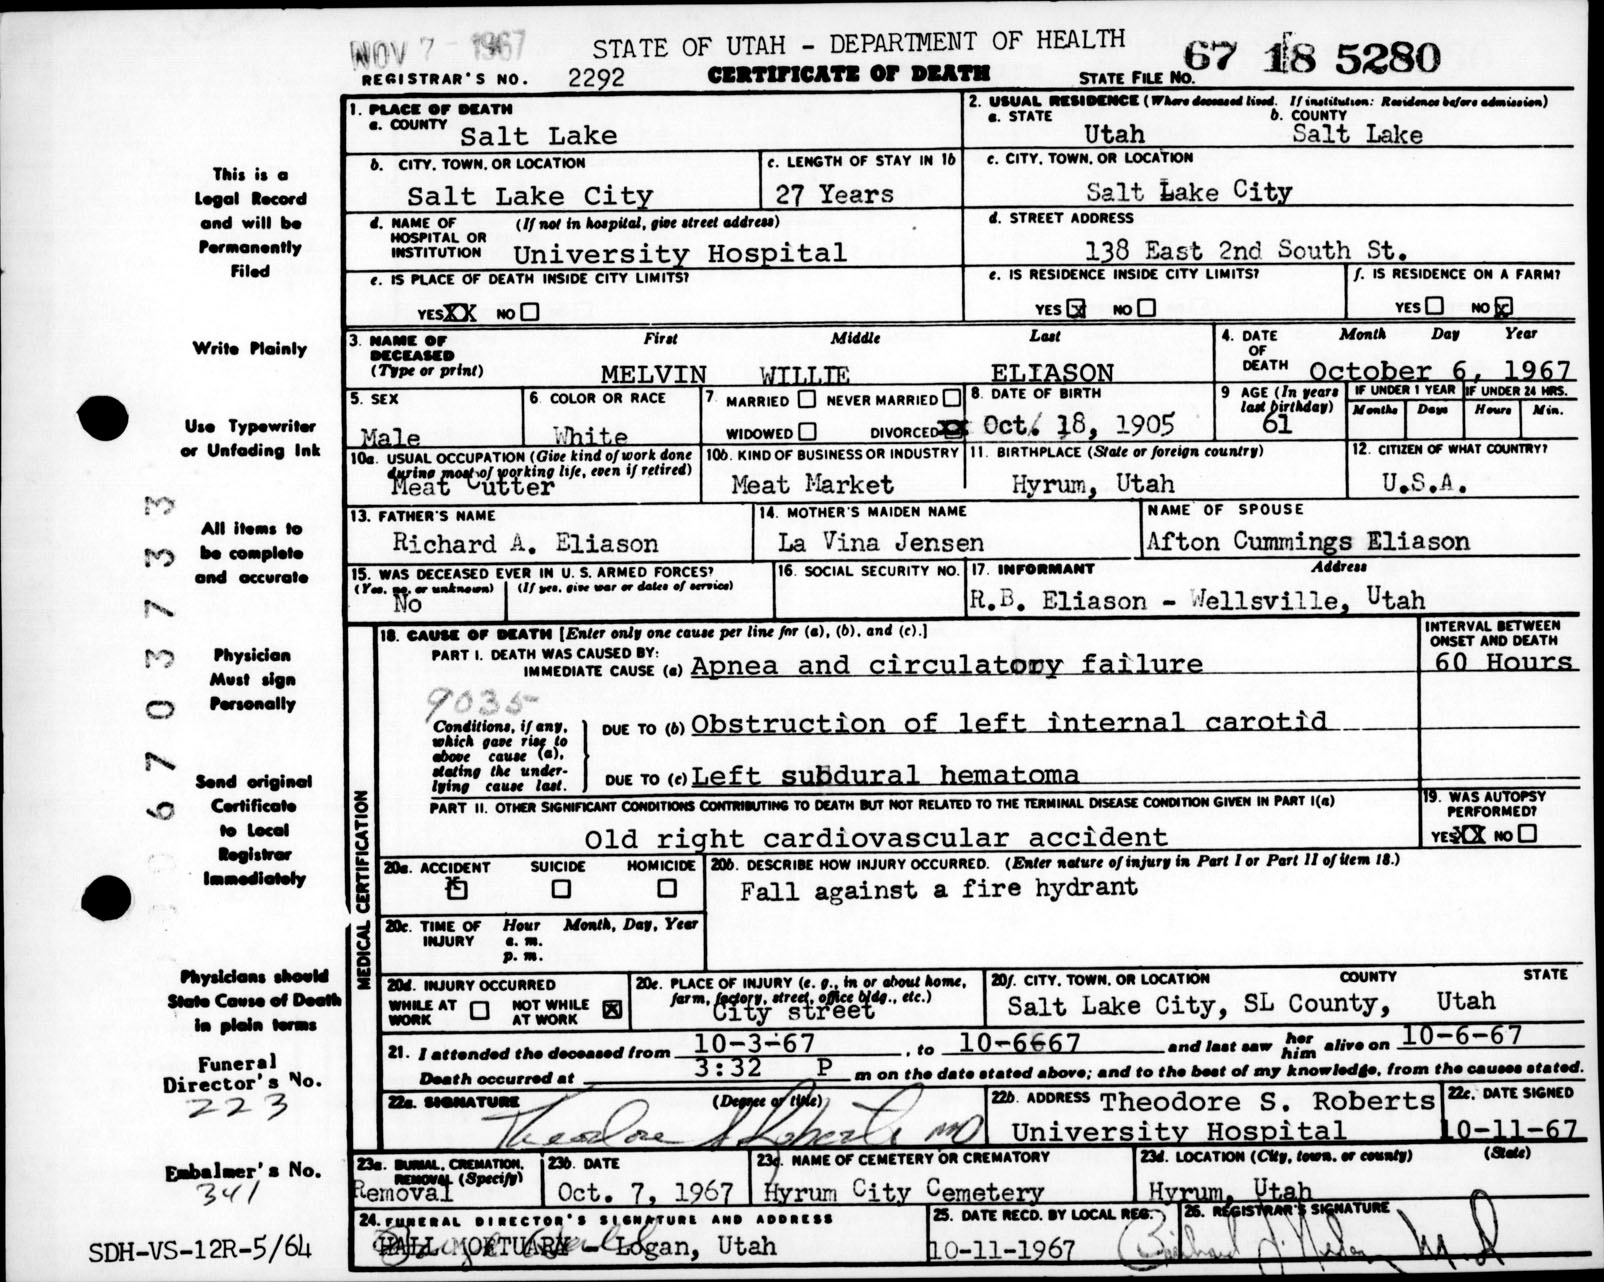 NOV 7 - 1967
STATE OF UTAH - DEPARTMENT OF HEALTH
67 18 5280
REGISTRAR'S NO. 2292
CERTIFICATE OF DEATH
STATE FILE NO.
This is a
Legal Record
and will be
Permanently
Filed
Write Plainly
Use Typewriter
or Unfading Ink
All items to
be complete
and accurate
Physician
Must sign
Personally
Send original
Certificate
to Local
Registrar
Immediately
Physicians should
State Cause of Death
in plain terms
Funeral
Director's No.
223
Embalmer's No.
341
SDH-VS-12R-5/64
1. PLACE OF DEATH
a. COUNTY Salt Lake
2. USUAL RESIDENCE (Where deceased lived. If institution: Residence before admission)
a. STATE Utah b. COUNTY Salt Lake
b. CITY, TOWN, OR LOCATION Salt Lake City
c. LENGTH OF STAY IN 1b 27 Years
c. CITY, TOWN, OR LOCATION Salt Lake City
d. NAME OF HOSPITAL OR INSTITUTION (If not in hospital, give street address) University Hospital
d. STREET ADDRESS 138 East 2nd South St.
e. IS PLACE OF DEATH INSIDE CITY LIMITS?
YES XX NO
e. IS RESIDENCE INSIDE CITY LIMITS?
YES X NO
f. IS RESIDENCE ON A FARM?
YES NO X
3. NAME OF DECEASED (Type or print) First Middle Last
MELVIN WILLIE ELIASON
4. DATE OF DEATH Month Day Year
October 6, 1967
5. SEX Male
6. COLOR OR RACE White
7. MARRIED NEVER MARRIED
WIDOWED DIVORCED XX
8. DATE OF BIRTH Oct. 18, 1905
9 AGE (In years last birthday) 61
IF UNDER 1 YEAR Months Days
IF UNDER 24 HRS. Hours Min.
10a. USUAL OCCUPATION (Give kind of work done during most of working life, even if retired) Meat Cutter
10b. KIND OF BUSINESS OR INDUSTRY Meat Market
11. BIRTHPLACE (State or foreign country) Hyrum, Utah
12. CITIZEN OF WHAT COUNTRY? U.S.A.
13. FATHER'S NAME Richard A. Eliason
14. MOTHER'S MAIDEN NAME La Vina Jensen
NAME OF SPOUSE Afton Cummings Eliason
15. WAS DECEASED EVER IN U. S. ARMED FORCES?
(Yes, no, or unknown) (If yes, give war or dates of service)
No
16. SOCIAL SECURITY NO.
17. INFORMANT Address
R.B. Eliason - Wellsville, Utah
MEDICAL CERTIFICATION
18. CAUSE OF DEATH [Enter only one cause per line for (a), (b), and (c).]
INTERVAL BETWEEN ONSET AND DEATH
PART I. DEATH WAS CAUSED BY:
IMMEDIATE CAUSE (a) Apnea and circulatory failure 60 Hours
9035
Conditions, if any, which gave rise to above cause (a), stating the underlying cause last.
DUE TO (b) Obstruction of left internal carotid
DUE TO (c) Left subdural hematoma
PART II. OTHER SIGNIFICANT CONDITIONS CONTRIBUTING TO DEATH BUT NOT RELATED TO THE TERMINAL DISEASE CONDITION GIVEN IN PART I(a)
Old right cardiovascular accident
19. WAS AUTOPSY PERFORMED?
YES XX NO
20a. ACCIDENT SUICIDE HOMICIDE
X
20b. DESCRIBE HOW INJURY OCCURRED. (Enter nature of injury in Part I or Part II of item 18.)
Fall against a fire hydrant
20c. TIME OF INJURY Hour Month, Day, Year
a. m.
p. m.
20d. INJURY OCCURRED
WHILE AT WORK NOT WHILE AT WORK X
20e. PLACE OF INJURY (e. g., in or about home, farm, factory, street, office bldg., etc.)
City street
20f. CITY, TOWN, OR LOCATION COUNTY STATE
Salt Lake City, SL County, Utah
21. I attended the deceased from 10-3-67, to 10-6667 and last saw her him alive on 10-6-67
Death occurred at 3:32 P m on the date stated above; and to the best of my knowledge, from the causes stated.
22a. SIGNATURE (Degree or title)
Theodore S Roberts MD
22b. ADDRESS Theodore S. Roberts
University Hospital
22c. DATE SIGNED
10-11-67
23a. BURIAL, CREMATION, REMOVAL (Specify)
Removal
23b. DATE
Oct. 7, 1967
23c. NAME OF CEMETERY OR CREMATORY
Hyrum City Cemetery
23d. LOCATION (City, town, or county) (State)
Hyrum, Utah
24. FUNERAL DIRECTOR'S SIGNATURE AND ADDRESS
HALL MORTUARY - Logan, Utah
25. DATE RECD. BY LOCAL REG.
10-11-1967
26. REGISTRAR'S SIGNATURE
67037733